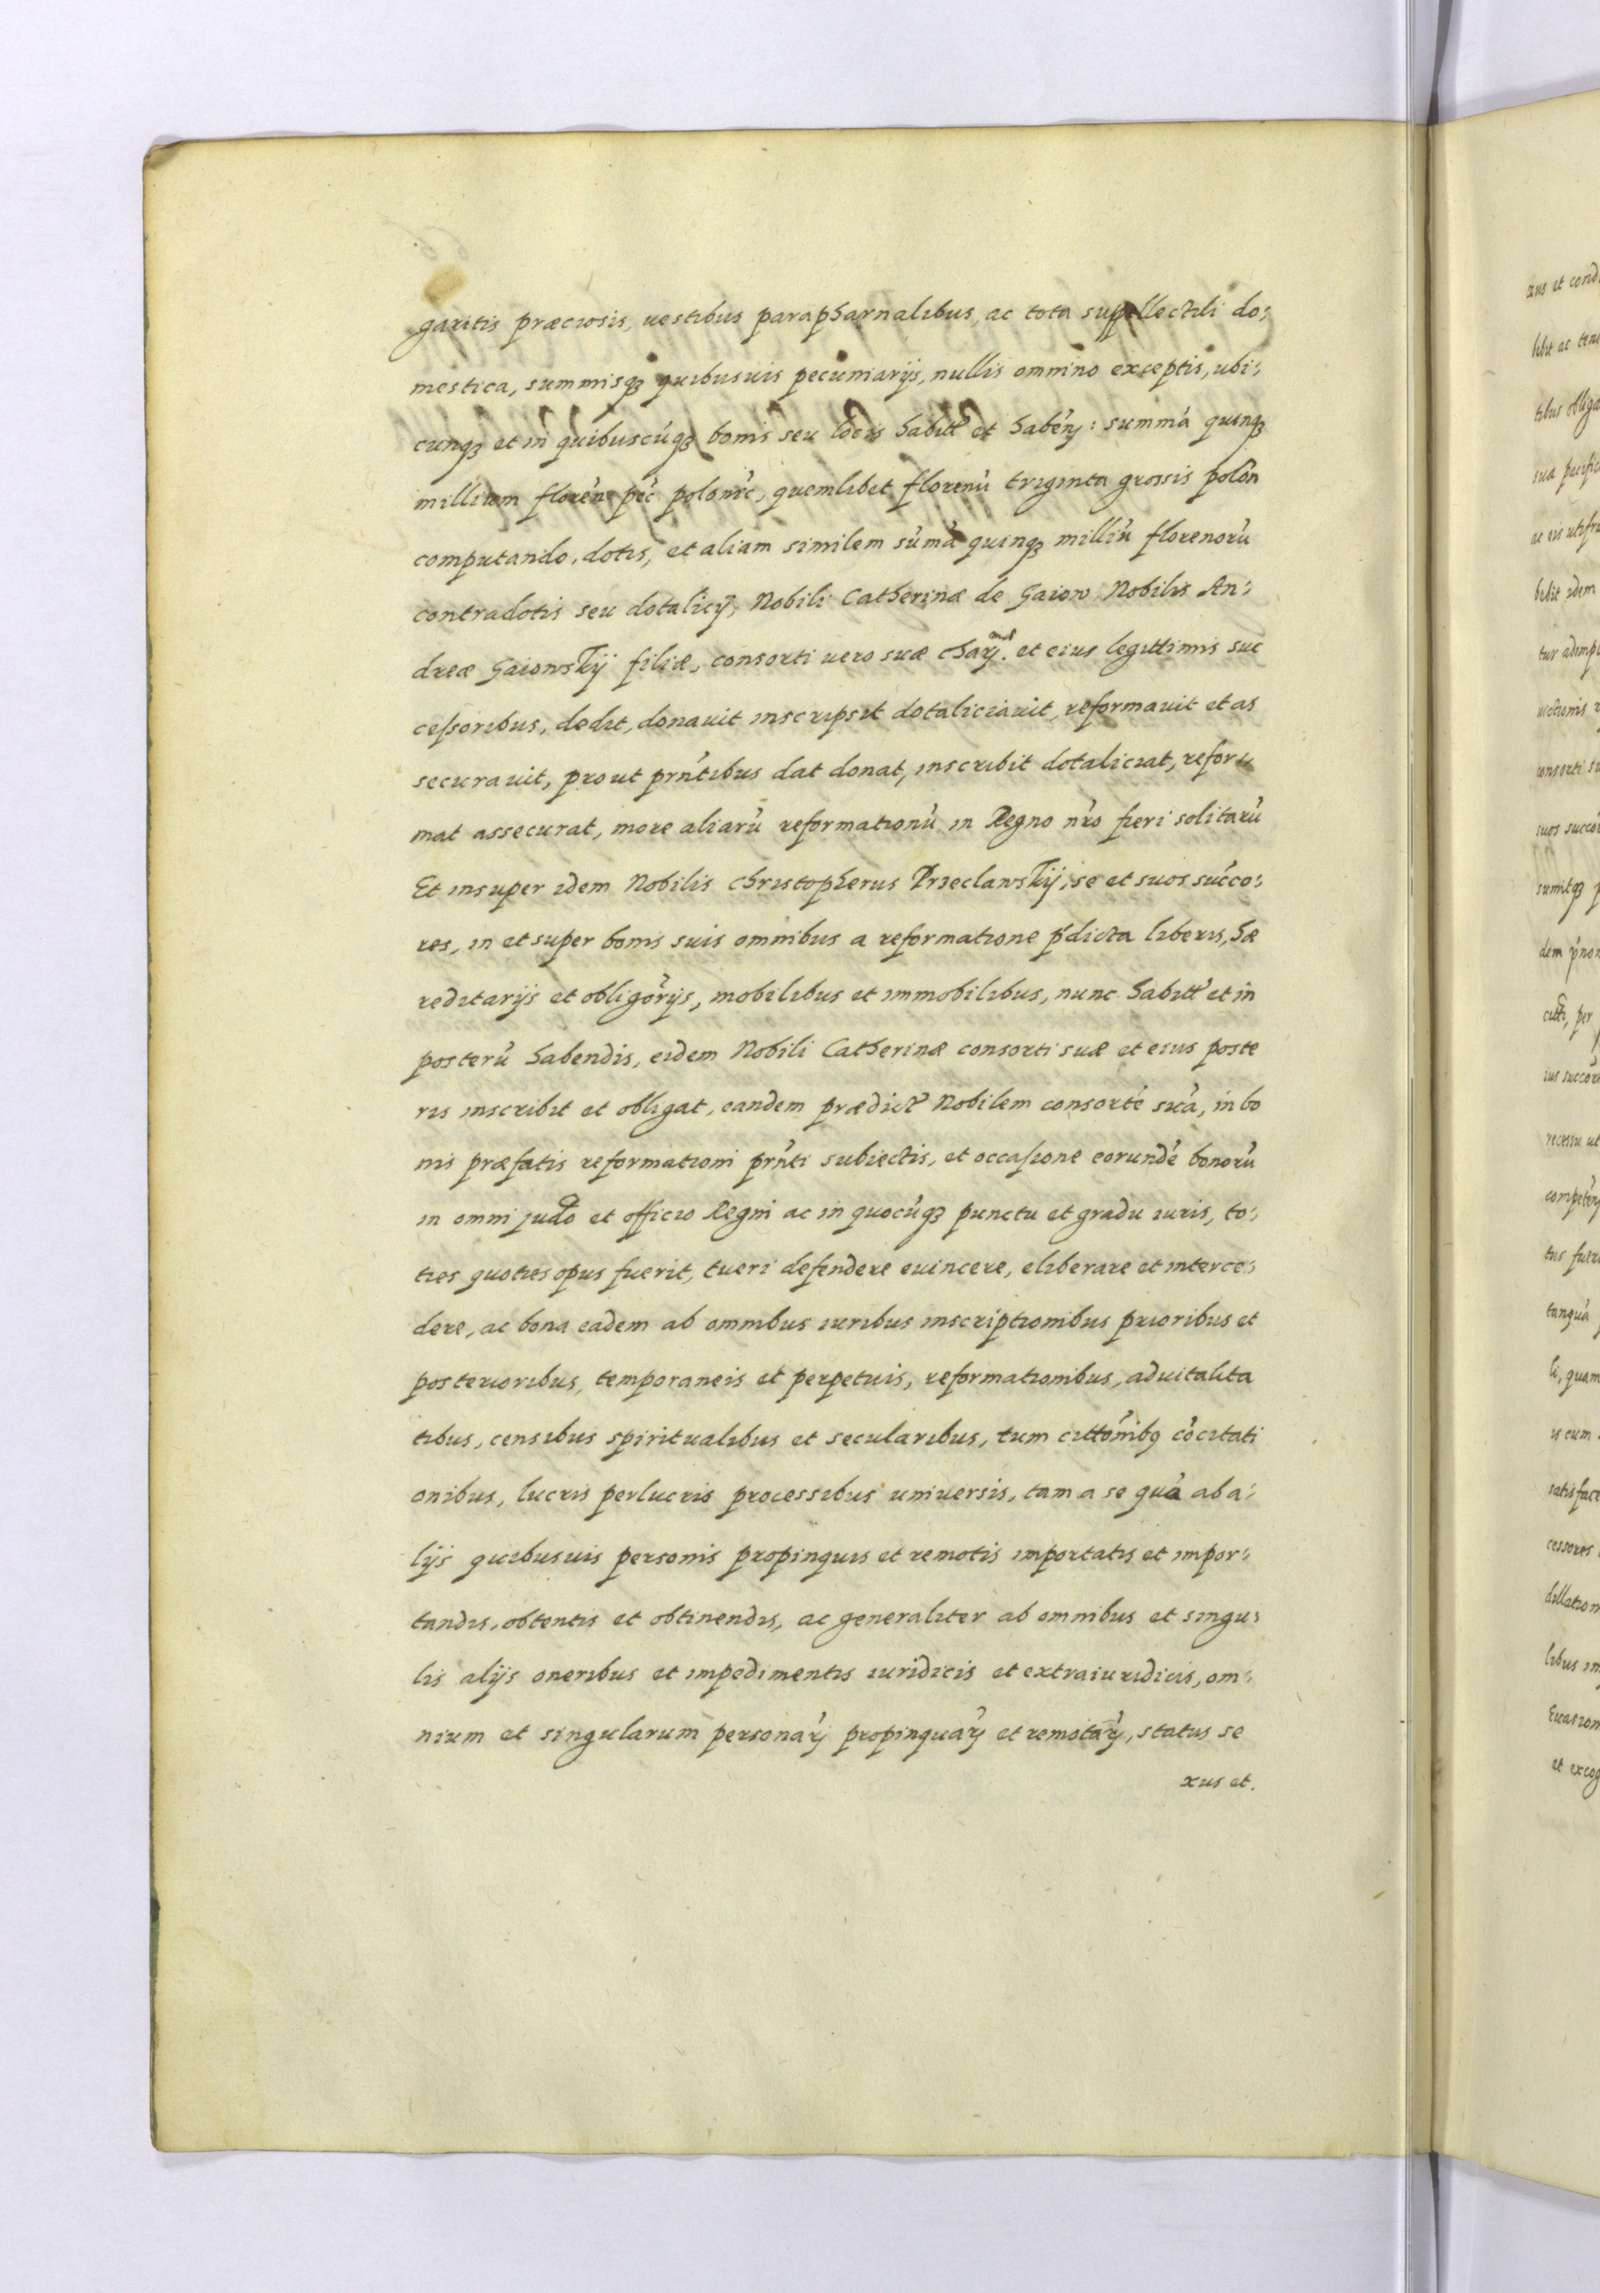 garitis præciosis, uestibus parapharnalibus, ac tota suppellectili do:
mestica, summisqȝ quibusuis pecuniarijs, nullis omnino exceptis, ubi:
cunqȝ et in quibuscúqȝ bonis seu locis habitt et habeń: summá quinqȝ
millium floreń peć polońić, quemlibet florenú triginta grossis poloń
computando, dotis, et aliam similem súmá quinqȝ millíu florenorú
contradotis seu dotalicij, Nobili Catherinæ de Gaiow Nobilis An:
dreæ Gaiowskij filiæ, consorti uero suæ char. et eius legittimis suc
cessoribus, dedit, donauit inscripsit dotaliciauit, reformauit et as
securauit, prout prńtibus dat donat, inscribit dotaliciat, refor:
mat assecurat, more aliarú reformationú in Regno nŕo fieri solitarú
Et insuper idem Nobilis Christopherus Przeclawskij, se et suos succo:
res, in et super bonis suis omnibus a reformatione p̓dicta liberis, hæ
reditarijs et obligorijs, mobilibus et immobilibus, nunc habitt et in
posterú habendis, eidem Nobili Catherinæ consorti suæ et eius poste
ris inscribit et obligat, eandem prædict Nobilem consorté suá, in bo
nis præfatis reformationi prńti subiectis, et occasione eorundé bonorú
in omni judo et officio Regni ac in quocúqȝ punctu et gradu iuris, to:
ties quoties opus fuerit, tueri defendere euincere, eliberare et interce:
dere, ac bona eadem ab omnibus iuribus inscriptionibus prioribus et
posterioribus, temporaneis et perpetuis, reformationibus, aduitalita
tibus, censibus spiritualibus et secularibus, tum cittonibꝰ cócitati
onibus, lucris perlucris processibus uniuersis, tam a se quá ab a:
lijs quibusuis personis propinquis et remotis importatis et impor:
tandis, obtentis et obtinendis, ac generaliter ab omnibus et singu:
lis alijs oneribus et impedimentis iuridicis et extraiuridicis, om:
nium et singularum personar̃ propinquar̃ et remotar̃, status se
xus et.